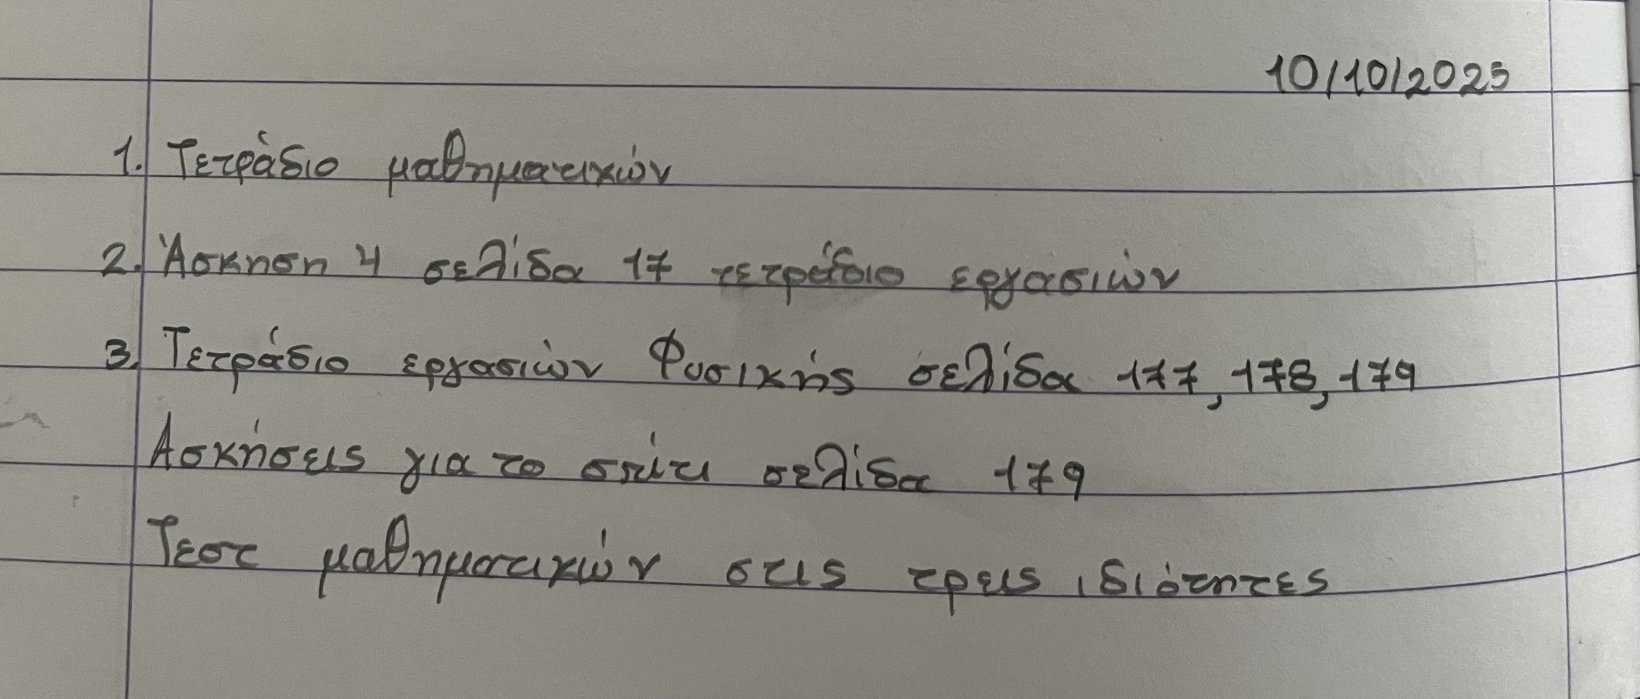 10/10/2025
1. Τετράδιο μαθηματικών
2. Άσκηση 4 σελίδα 17 τετράδιο εργασιών
3. Τετράδιο εργασιών Φυσικής σελίδα 177, 178, 179
Ασκήσεις για το σπίτι σελίδα 179
Τεστ μαθηματικών στις τρεις ιδιότητες